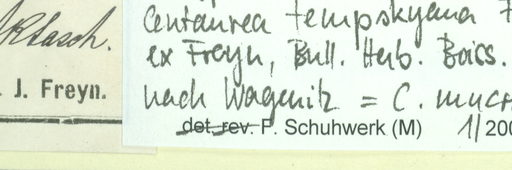 J. Freyn.
Centaurea tempskyana F
ex Freyn, Bull. Herb. Boiss.
nach Wagenitz = C. mucr
det. rev. F. Schuhwerk (M) 1/200